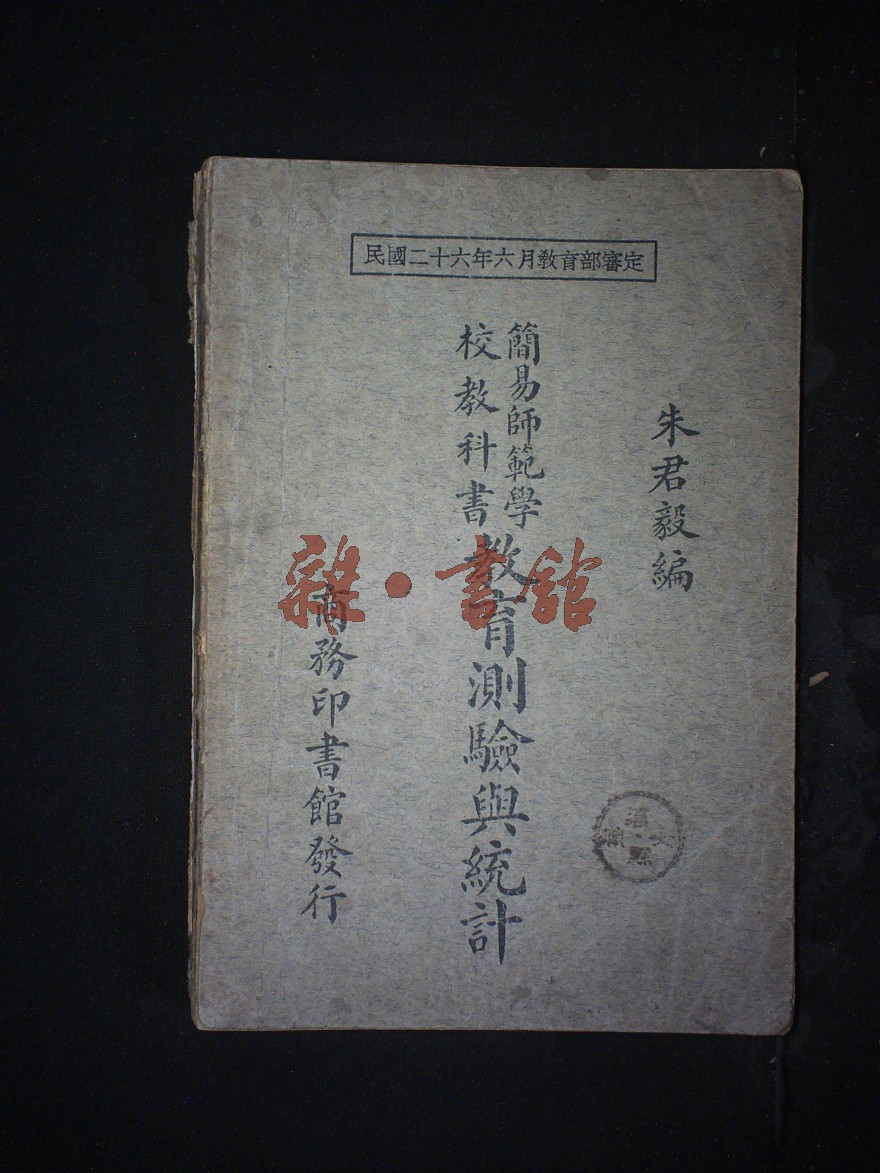 民國二十六年六月教育部審定
朱君毅編
簡易師範學
校教科書
教育測驗與統計
商務印書館發行
雜·書館
縣